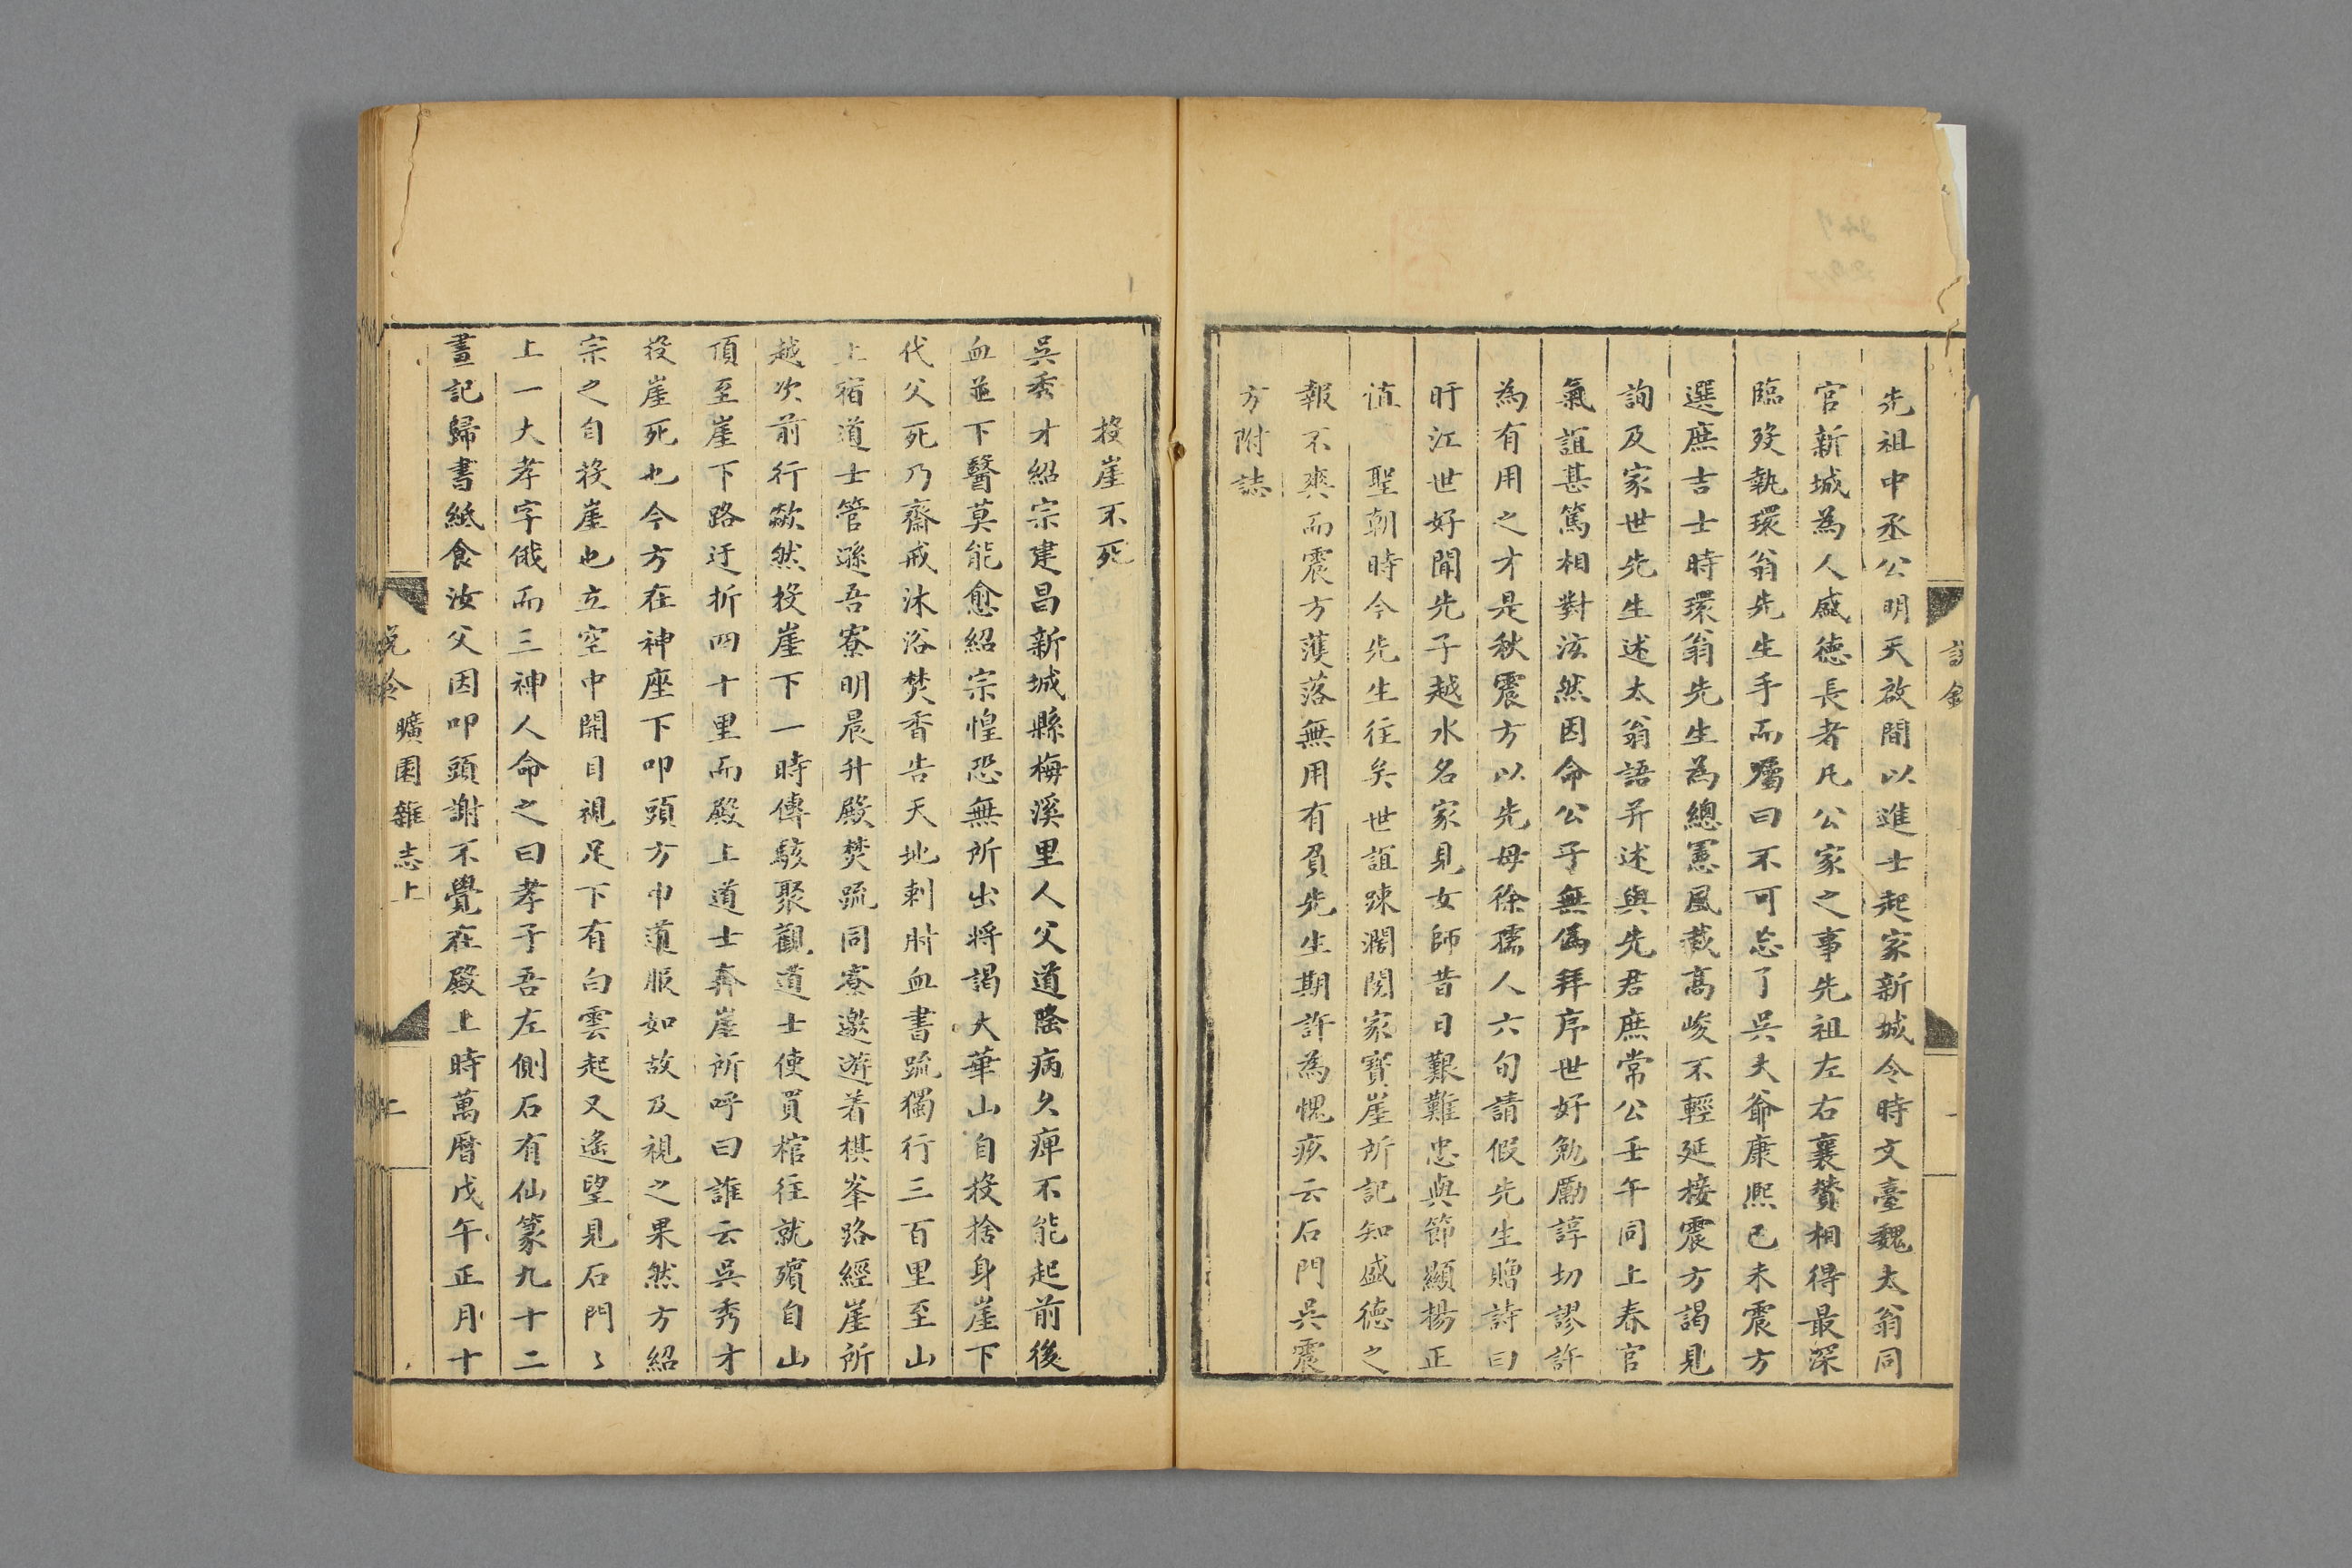 先祖中丞公明天啟間以進士起家新城令時文臺魏太翁同
官新城為人盛德長者凡公家之事先祖左右襄贊相得最深
臨歿執環翁先生手而囑曰不可忘了吳大爺康熙己未震方
選庶吉士時環翁先生為總憲風裁高峻不輕延接震方謁見
詢及家世先生述太翁語并述與先君庶常公壬午同上春官
氣誼甚篤相對泫然因命公子無偽拜序世好勉勵諄切謬許
為有用之才是秋震方以先母徐孺人六旬請假先生贈詩曰
盱江世好聞先子越水名家見女師昔日艱難忠與節顯揚正
值 聖朝時今先生往矣世誼踈濶閱家寶崖所記知盛德之
報不爽而震方濩落無用有負先生期許為愧疚云石門吳震
方附誌
投崖不死
吳秀才紹宗建昌新城縣梅溪里人父道隆病久痺不能起前後
血並下醫莫能愈紹宗惶恐無所出將謁大華山自投捨身崖下
代父死乃齋戒沐浴焚香告天地刺肘血書疏獨行三百里至山
上宿道士管遜吾寮明晨升殿焚疏同寮邀遊着棋峯路經崖所
越次前行歘然投崖下一時傳駭聚觀道士使買棺往就殯自山
頂至崖下路迂折四十里而殿上道士奔崖所呼曰誰云吳秀才
投崖死也今方在神座下叩頭方巾道服如故及視之果然方紹
宗之自投崖也立空中開目視足下有白雲起又遙望見石門〻
上一大孝字俄而三神人命之曰孝子吾左側石有仙篆九十二
畫記歸書紙食汝父因叩頭謝不覺在殿上時萬曆戊午正月十
說鈴 曠園雜志上 二